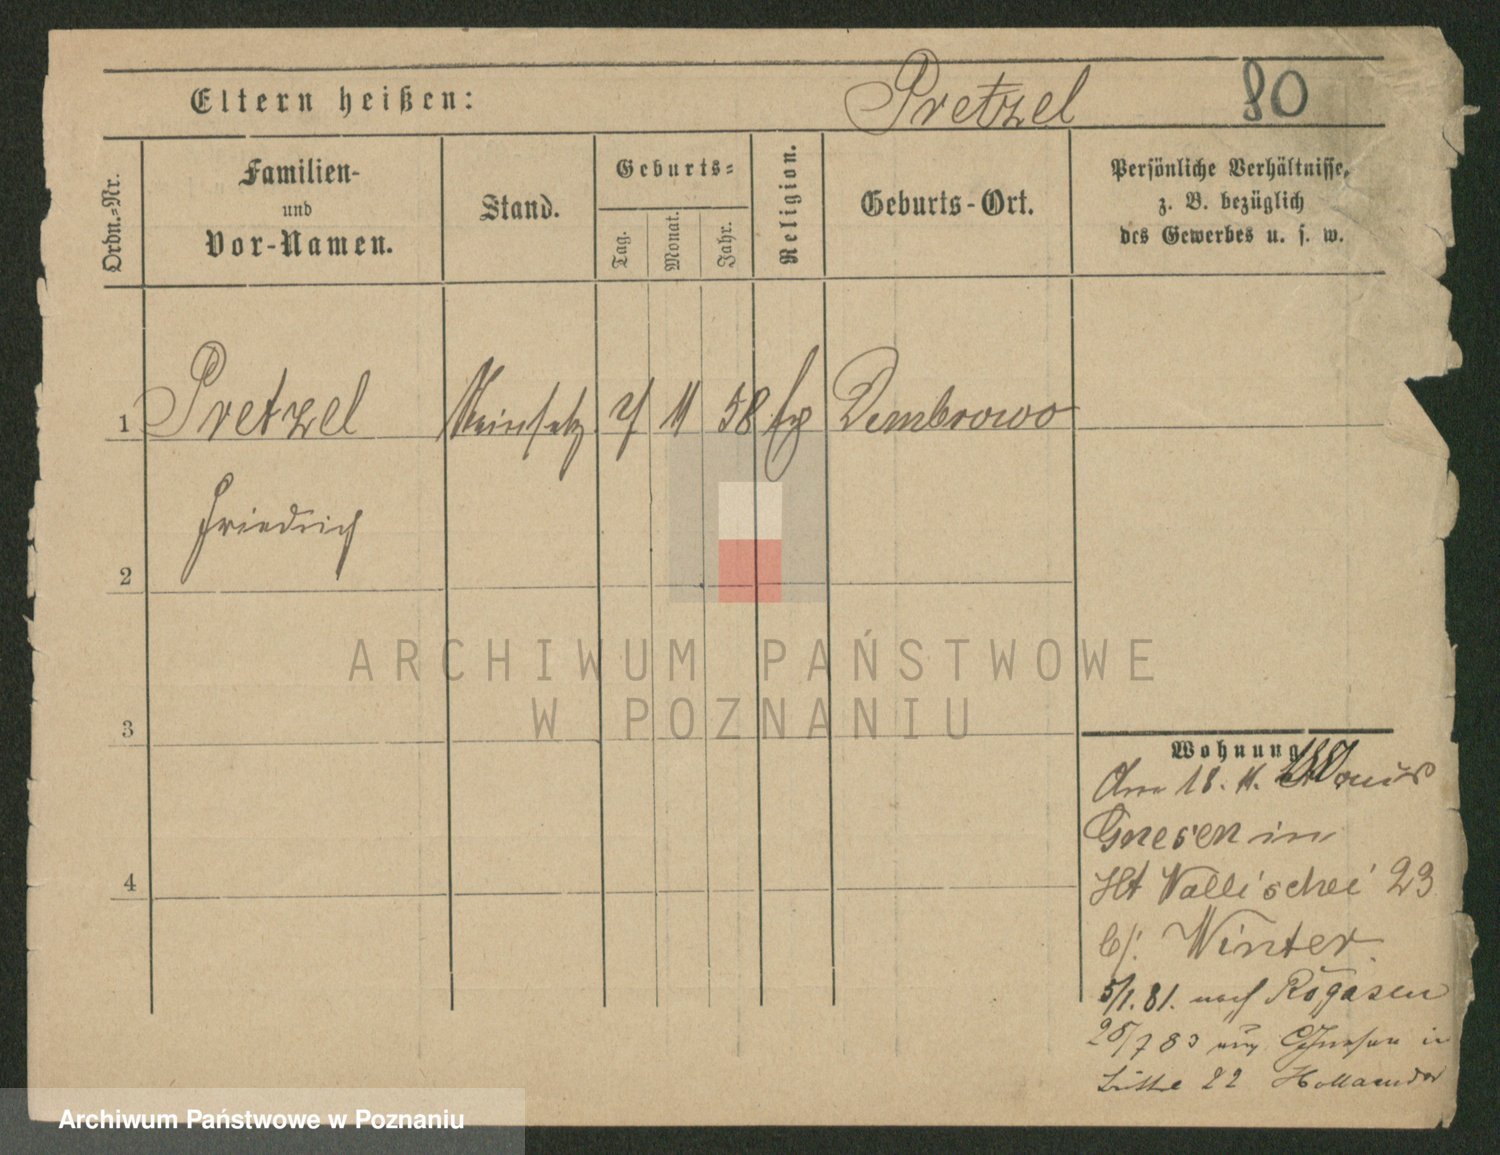 Eltern heißen: Pretzel 80
Ordn.-Nr.
Familien-
und
Vor-Namen.
Stand.
Geburts-
Tag.
Monat.
Jahr.
Religion.
Geburts-Ort.
Persönliche Verhältnisse,
z. B. bezüglich
des Gewerbes u. s. w.
1 Pretzel 11 58 Dembrowo
Friedrich
2
3
4
ARCHIWUM PAŃSTWOWE
W POZNANIU
Wohnung
Am 18. 11. aus
Gnesen in
Wallischei 23
b/. Winter.
5/1. 81. nach Rogasen
28/7 83 aus Gnesen in
22 Hollaender
Archiwum Państwowe w Poznaniu